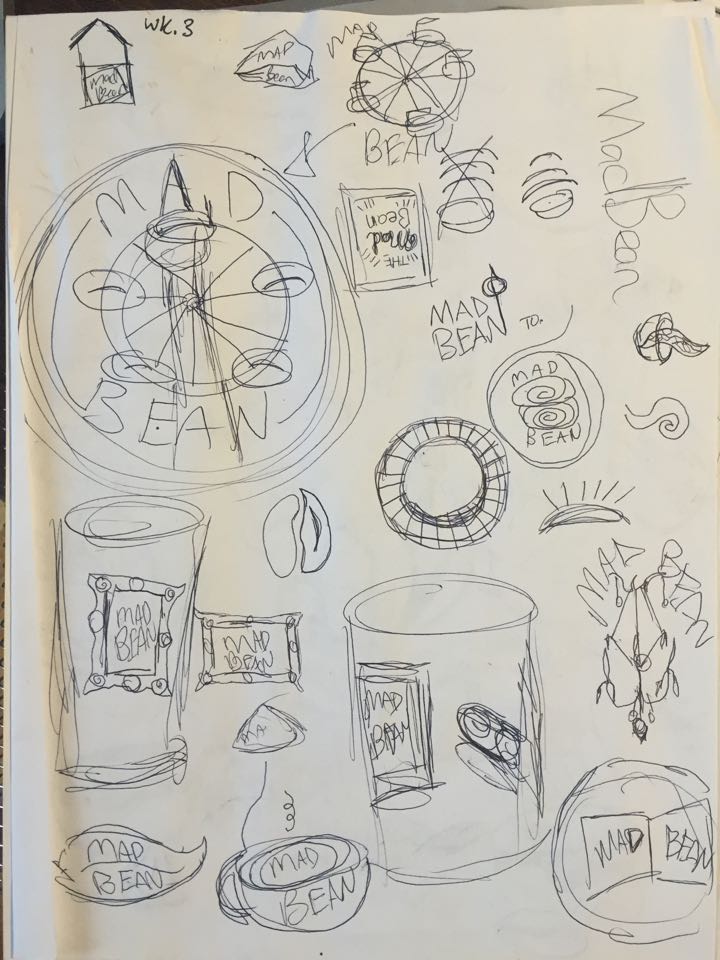 WK.3
Mad
Bean
MAD
Bean
MAD
BEAN
MadBean
MAD
BEAN
THE
Mad
Bean
MAD
BEAN
TO:
MAD
BEAN
MAD BEAN
MAD
BEAN
MAD
BEAN
MAD
BEAN
MA
MAD
BEAN
MAD
BEAN
MAD BEAN